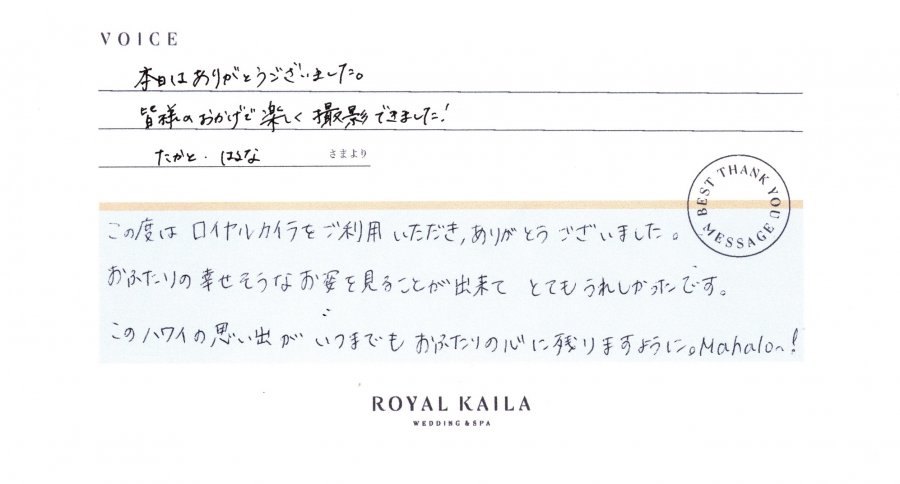 VOICE
本日はありがとうございました。
皆様のおかげで楽しく撮影できました!
たかと・はるな さまより
BEST THANK YOU MESSAGE
この度はロイヤルカイラをご利用いただき,ありがとうございました。
おふたりの幸せそうなお姿を見ることが出来てとてもうれしかったです。
このハワイの思い出がいつまでもおふたりの心に残りますように。Mahalo~!
ROYAL KAILA
WEDDING & SPA